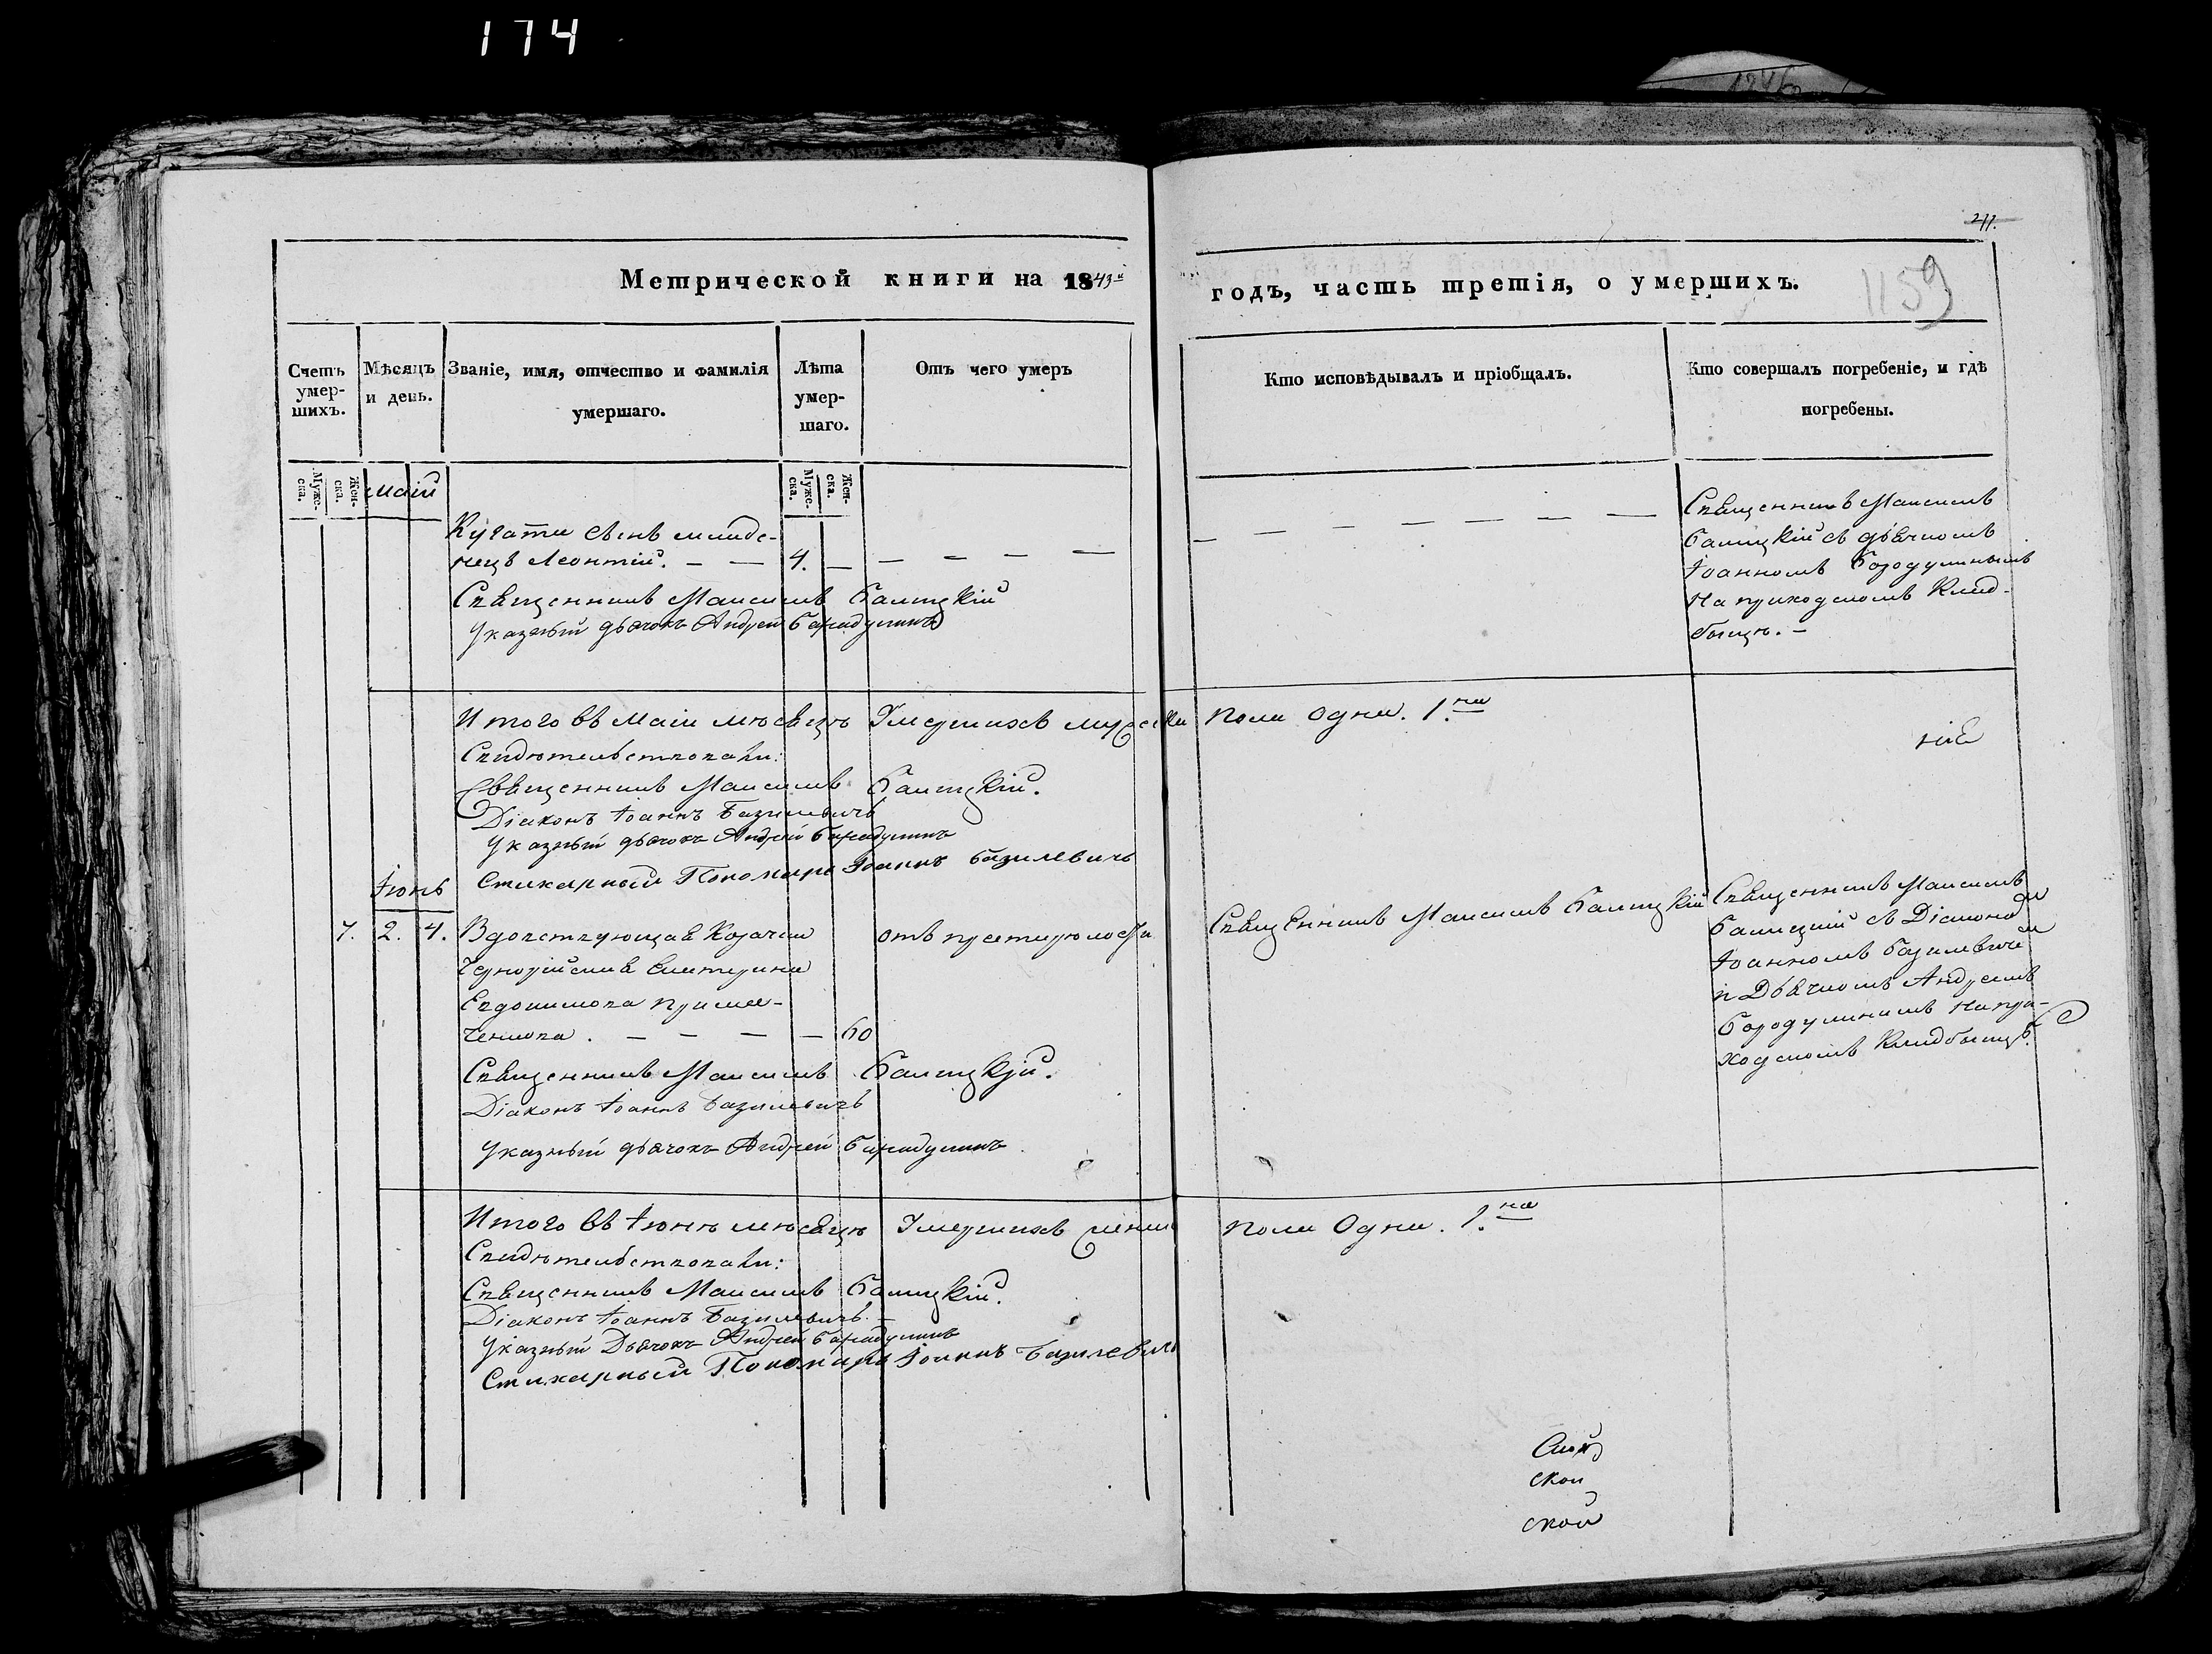 174
211.
1159
Метрической книги на 1843й годъ, часть третія, о умершихъ.
Счетъ умер-шихъ.
Мѣсяцъ и день.
Званіе, имя, отчество и фамилія умершаго.
Лѣта умер-шаго.
Отъ чего умеръ
Кто исповѣдывалъ и пріобщалъ.
Кто совершалъ погребеніе, и гдѣ погребены.
Муже-ска.
Жен-ска.
Маій
Муже-ска.
Жен-ска.
сынъ младе-
нецъ Леонтій. — — 4. — — — — —
Священникъ Максимъ Балицкій
Указный дьячокъ Андрей Бародулинъ
Священникъ Максимъ
Балицкій съ дьячкомъ
Іоанномъ Бородулинымъ
на приходскомъ клад-
бищѣ. —
Итого въ маіи мѣсяцѣ Умершихъ мужеска пола одна. 1.на
Свидѣтельствовали:
Священникъ Максимъ Балицкій.
Діаконъ Іоаннъ Базилевичъ
Указный дьячокъ Андрей Бародулинъ
Стихарный Пономарь Іоаннъ Базилевичъ
ніе
Іюнь
7. 2. 4. Вдовствующая Козачка
Екатерина
Евдокимова
60
отъ престарѣлости
Священникъ Максимъ Балицкій
Священникъ Максимъ
Балицкій съ Діакономъ
Іоанномъ Базилевичемъ
и Дьячкомъ Андреемъ
Бородулинимъ на при-
ходскомъ кладбищѣ.
Священникъ Максимъ Балицкій.
Діаконъ Іоаннъ Базилевичъ
Указный дьячокъ Андрей Бародулинъ
Итого въ Іюнѣ мѣсяцѣ Умершихъ женска пола Одна. 1.на
Свидѣтельствовали:
Священникъ Максимъ Балицкій.
Діаконъ Іоаннъ Базилевичъ. —
Указный Дьячокъ Андрей Бародулинъ
Стихарный Пономарь Іоаннъ Базилевичъ
ской
ской